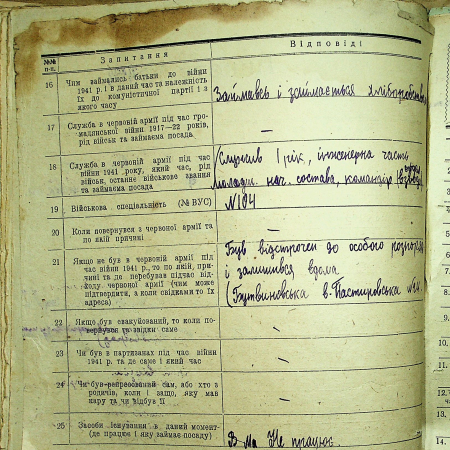 №№ п-п.
Запитання
Відповіді
16
Чим займались батьки до війни
1941 р. і в даний час та належність
їх до комуністичної партії і з
якого часу
Займавсь і займається хліборобством
17
Служба в червоній армії під час гро-
мадянської війни 1917—22 років,
рід військ та займаєма посада
—
18
Служба в червоній армії під час
війни 1941 року, який час, рід
військ, останнє військове звання
та займаєма посада
Служив 1 рік, інженерна част
молодш. нач. состава, командір
19
Військова спеціальність (№ ВУС)
№ 104
20
Коли повернувся з червоної армії та
по якій причині
—
21
Якщо не був в червоній армії під
час війни 1941 р., то по якій, при-
чині та де перебував підчас від-
ходу червоної армії (чим може
підтвердити, а коли свідками то їх
адреса)
Був відстрочен до особого
і залишився вдома
22
Якщо був евакуйований, то коли по-
вернувся та звідки саме
—
23
Чи був в партизанах під час війни
1941 р. та де саме і який час
—
24
Чи був репресований сам, або хто з
родичів, коли і защо, яку мав
кару та чи відбув її
—
25
Засоби існування в даний момент
(де працює і яку займає посаду)
Не працює.
11.
12.
13.
14.